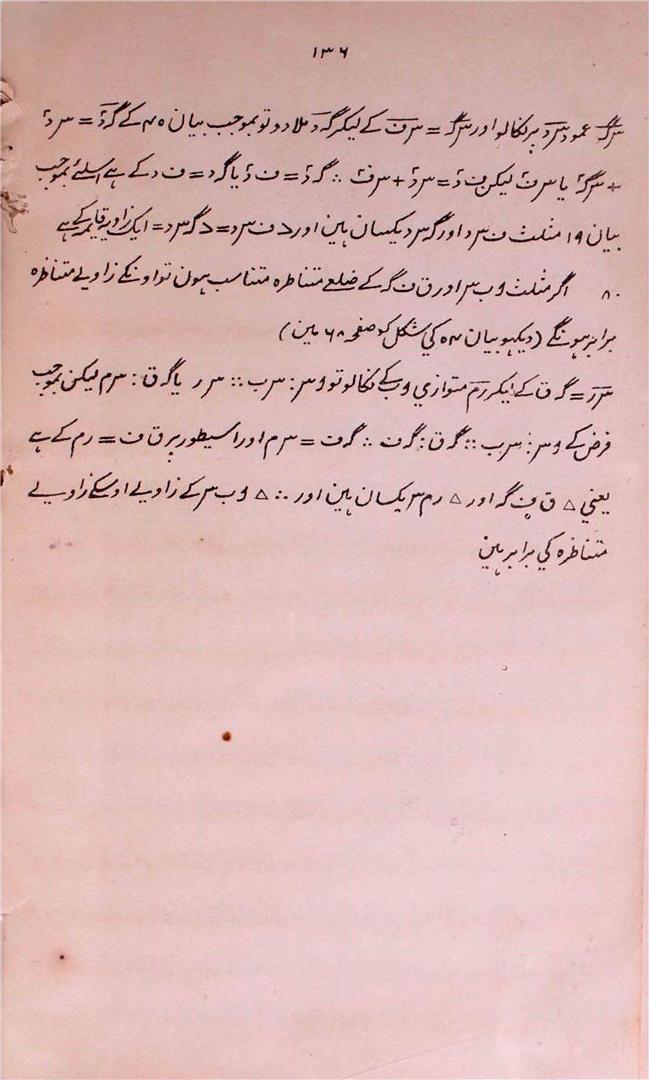 ۱۳۶
سگ عمود سد پر نکالو اور سگ = سف کے لیکر گد ملا دو تو بموجب بیان ۴۵ کے گدٔ = سدٔ
+ سگٔ یا سفٔ لیکن فدٔ = سدٔ + سفٔ ∴ گدٔ = فدٔ یا گد = فد کے ہے اسلئے بموجب
بیان ۱۹ مثلث ف س د اور گ س د یکسان ہین اور > ف س د = > گ س د = ایک زاویہ قایمہ کے ہے
۸۰ اگر مثلث و ب س اور ق ف گ کے ضلعے متناظرہ متناسب ہون تو اونکے زاویے متناظرہ
برابر ہونگے (دیکہو بیان ۵۴ کی شکل کو صفحہ ۶۸ مین)
س ر = گ ق کے لیکر رم متوازی و ب کے نکالو تو و س : س ب :: س ر یا گ ق : س م لیکن بموجب
فرض کے و س : س ب :: گ ق : گ ف ∴ گ ف = س م اور اسیطور پر ق ف = رم کے ہے
یعنی △ ق ف گ اور △ رم س یکسان ہین اور ∴ △ و ب س کے زاویے اوسکے زاویے
متناظرہ کی برابر ہین